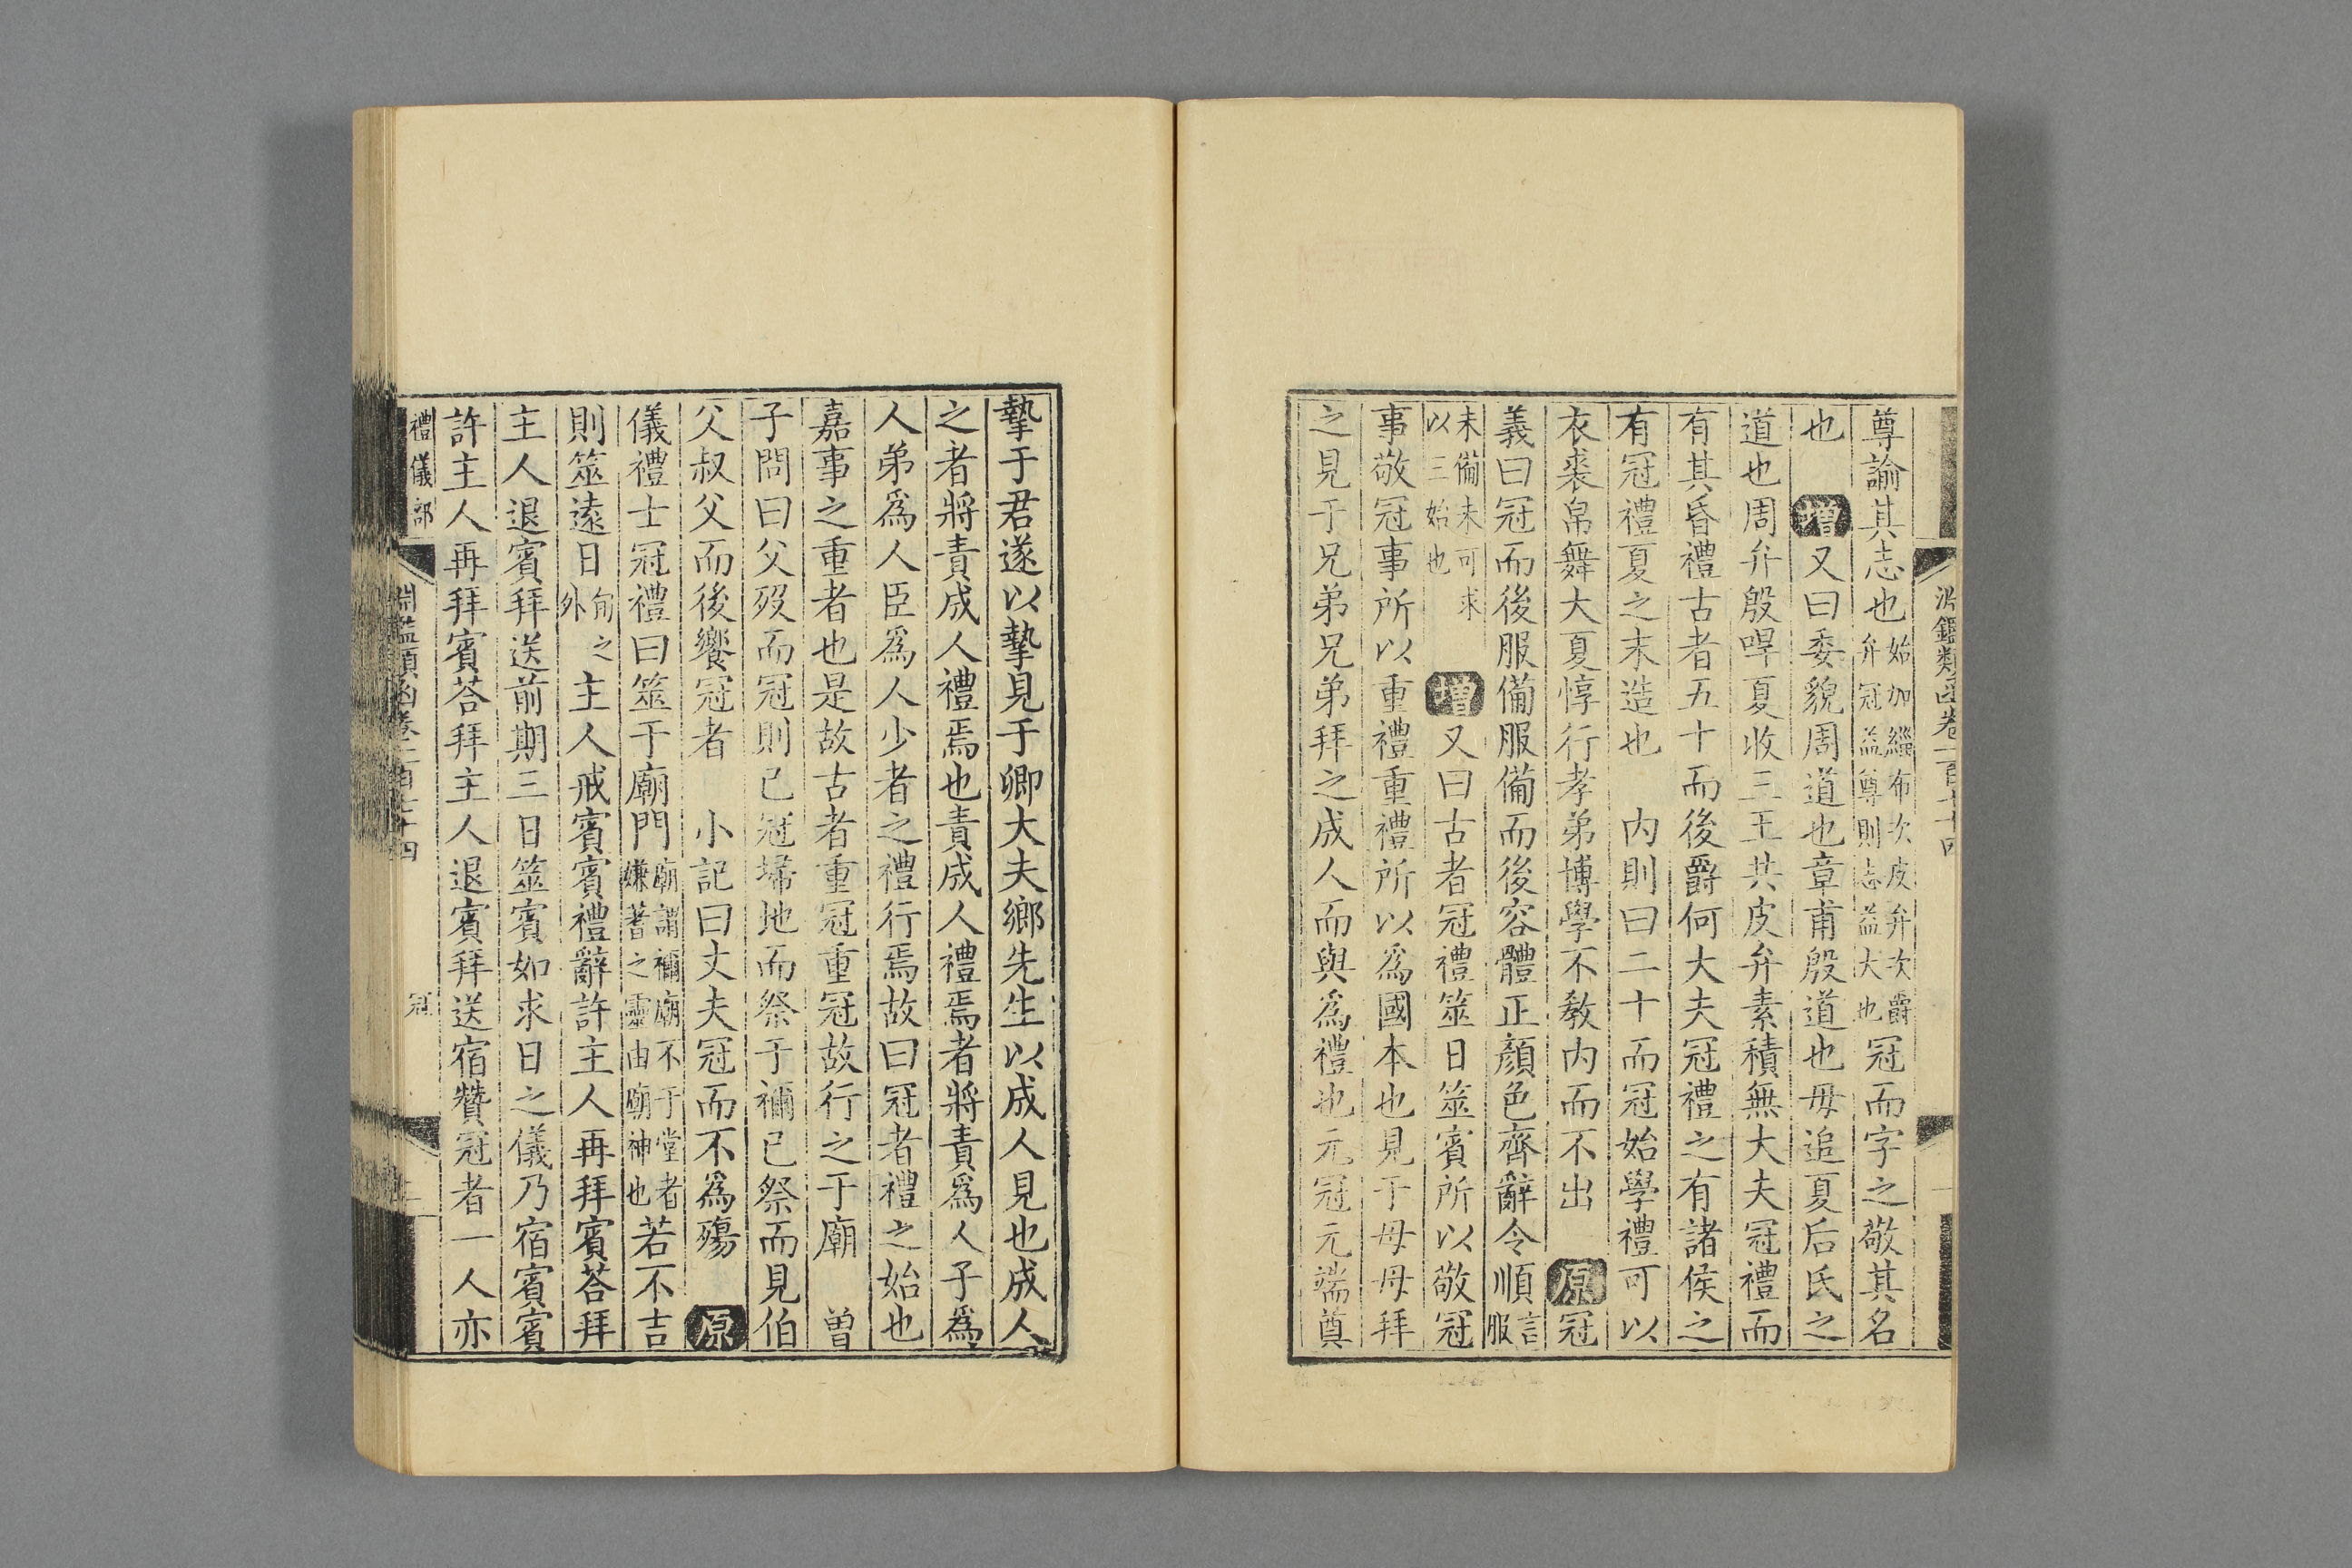 尊諭其志也始加緇布次皮弁次爵弁冠益尊則志益大也冠而字之敬其名
也　增又曰委貌周道也章甫殷道也毋追夏后氏之
道也周弁殷哻夏收三王共皮弁素積無大夫冠禮而
有其昏禮古者五十而後爵何大夫冠禮之有諸侯之
有冠禮夏之末造也　內則曰二十而冠始學禮可以
衣裘帛舞大夏惇行孝弟博學不敎內而不出　原冠
義曰冠而後服備服備而後容體正顏色齊辭令順言服
未備未可求以三始也　增又曰古者冠禮筮日筮賓所以敬冠
事敬冠事所以重禮重禮所以爲國本也見于母母拜
之見于兄弟兄弟拜之成人而與爲禮也元冠元端奠
摯于君遂以摯見于卿大夫鄉先生以成人見也成人
之者將責成人禮焉也責成人禮焉者將責爲人子爲
人弟爲人臣爲人少者之禮行焉故曰冠者禮之始也
嘉事之重者也是故古者重冠重冠故行之于廟　曾
子問曰父歿而冠則已冠埽地而祭于禰已祭而見伯
父叔父而後饗冠者　小記曰丈夫冠而不爲殤　原
儀禮士冠禮曰筮于廟門廟謂禰廟不于堂者嫌蓍之靈由廟神也若不吉
則筮遠日旬之外主人戒賓賓禮辭許主人再拜賓荅拜
主人退賓拜送前期三日筮賓如求日之儀乃宿賓賓
許主人再拜賓荅拜主人退賓拜送宿贊冠者一人亦
禮儀部　淵鑑類函卷一百七十四　冠　二